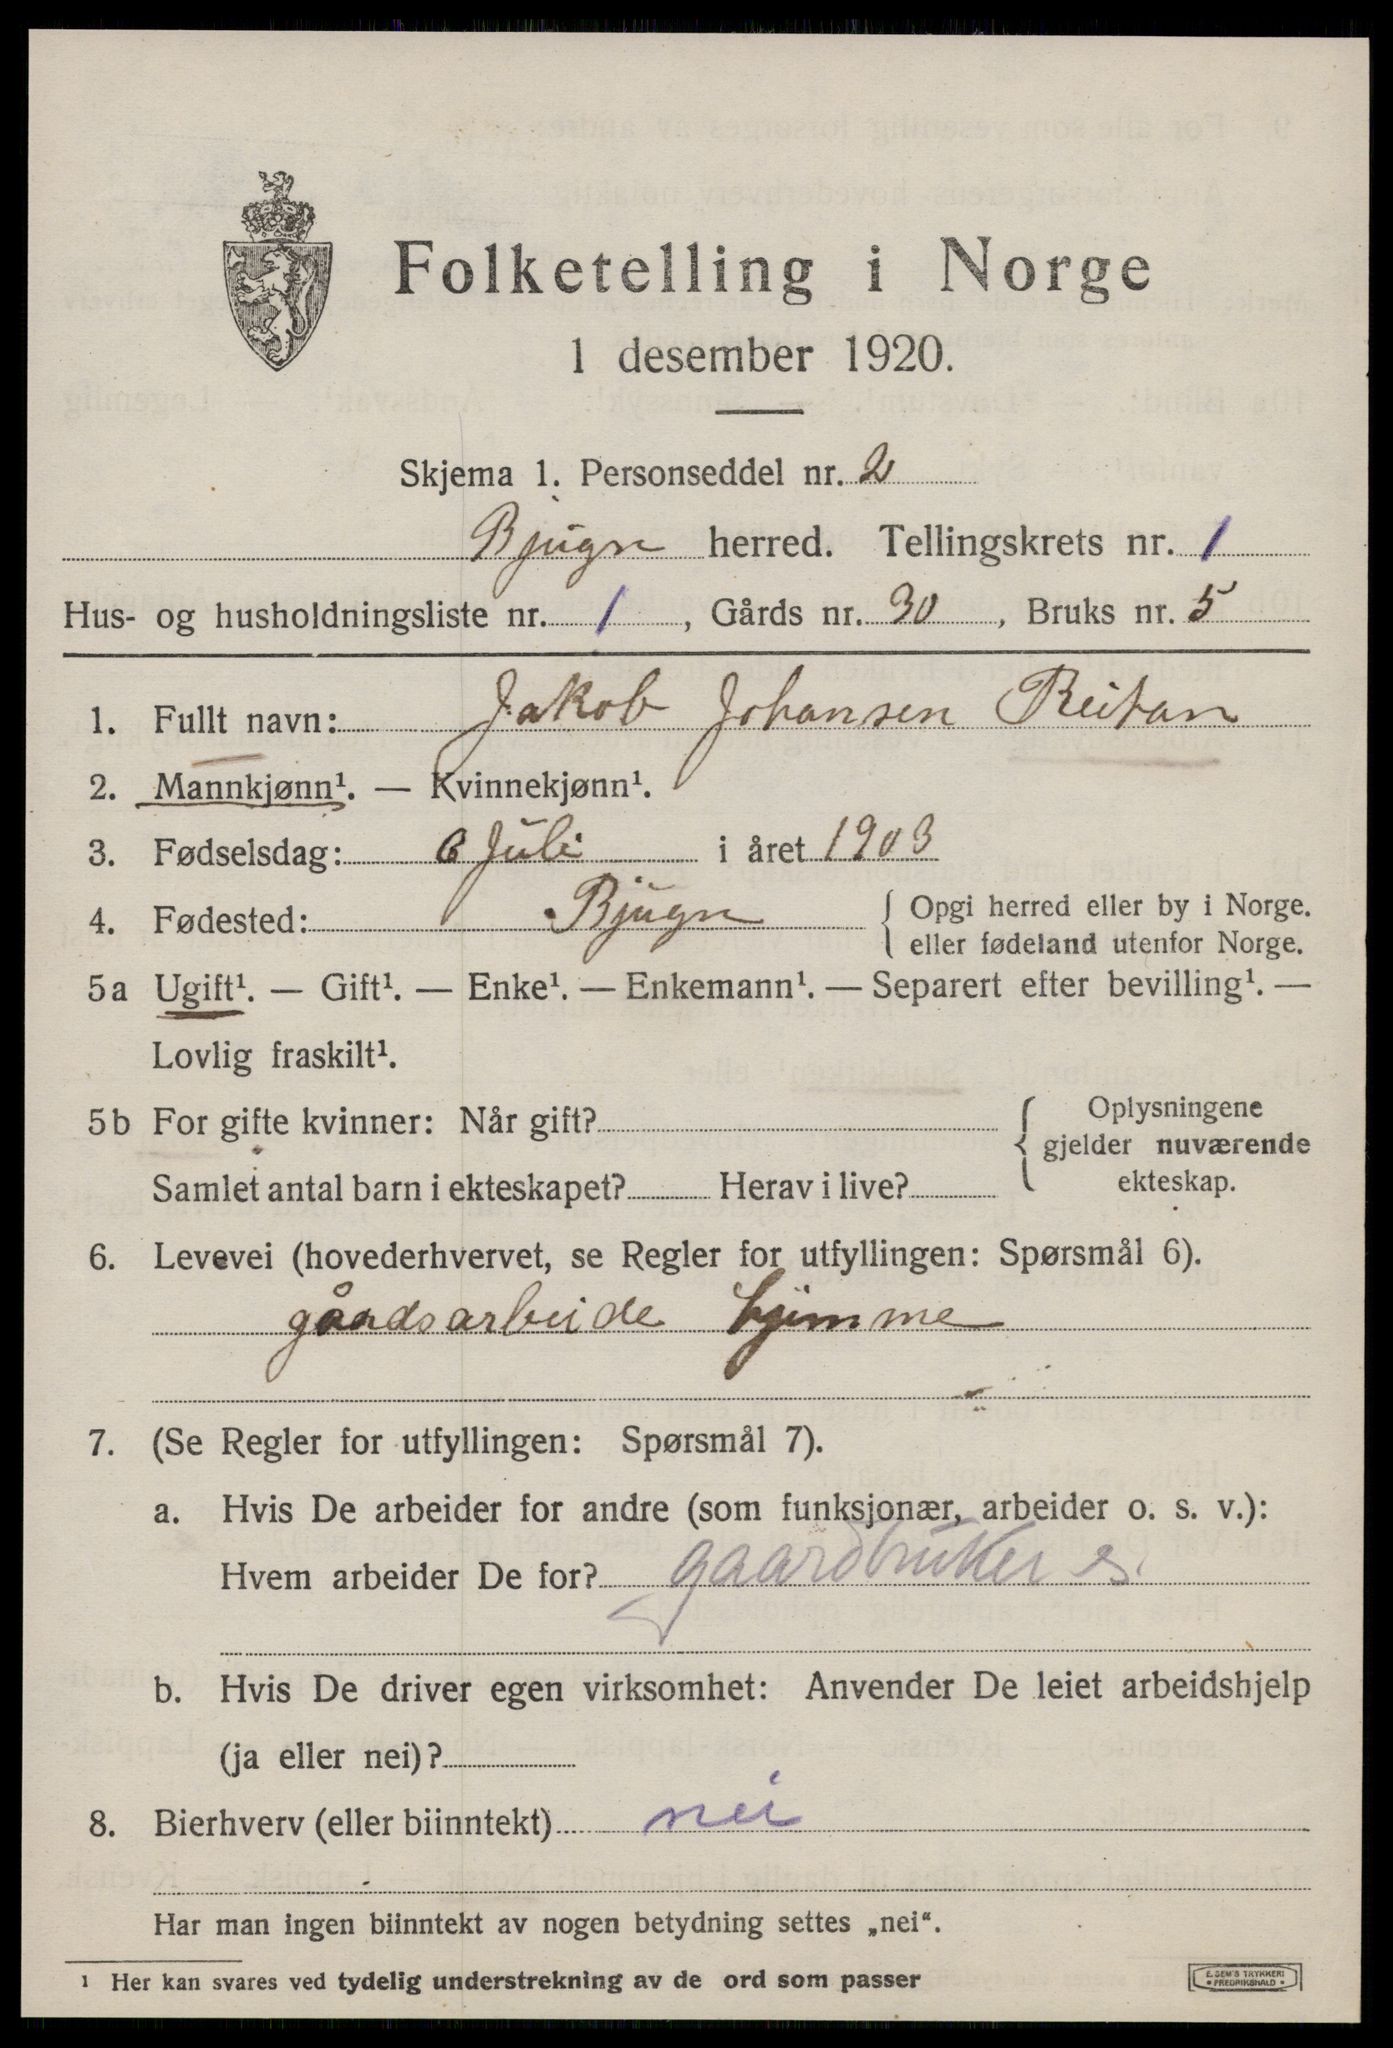 Folketelling i Norge
1 desember 1920.
Skjema 1. Personseddel nr. 2
Bjugn herred. Tellingskrets nr. 1
Hus- og husholdningsliste nr. 1, Gårds nr. 30, Bruks nr. 5
1. Fullt navn: Jakob Johansen Reitan
2. Mannkjønn¹. — Kvinnekjønn¹.
3. Fødselsdag: 6 Juli i året 1903
4. Fødested: Bjugn { Opgi herred eller by i Norge.
eller fødeland utenfor Norge.
5a Ugift¹. — Gift¹. — Enke¹. — Enkemann¹. — Separert efter bevilling¹. —
Lovlig fraskilt¹.
5b For gifte kvinner: Når gift?
Samlet antal barn i ekteskapet? Herav i live?
{ Oplysningene
gjelder nuværende
ekteskap.
6. Levevei (hovederhvervet, se Regler for utfyllingen: Spørsmål 6).
gåardsarbeide hjemme
7. (Se Regler for utfyllingen: Spørsmål 7).
a. Hvis De arbeider for andre (som funksjonær, arbeider o. s. v.):
Hvem arbeider De for? gaardbruker s.
b. Hvis De driver egen virksomhet: Anvender De leiet arbeidshjelp
(ja eller nei)?
8. Bierhverv (eller biinntekt) nei
Har man ingen biinntekt av nogen betydning settes „nei“.
¹ Her kan svares ved tydelig understrekning av de ord som passer
E. SEM'S TRYKKERI
• FREDRIKSHALD •